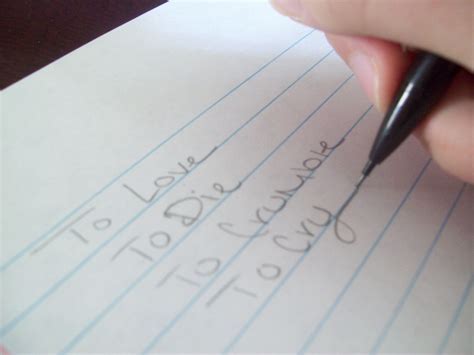 To Love
To Die
To Crumble
To Cry